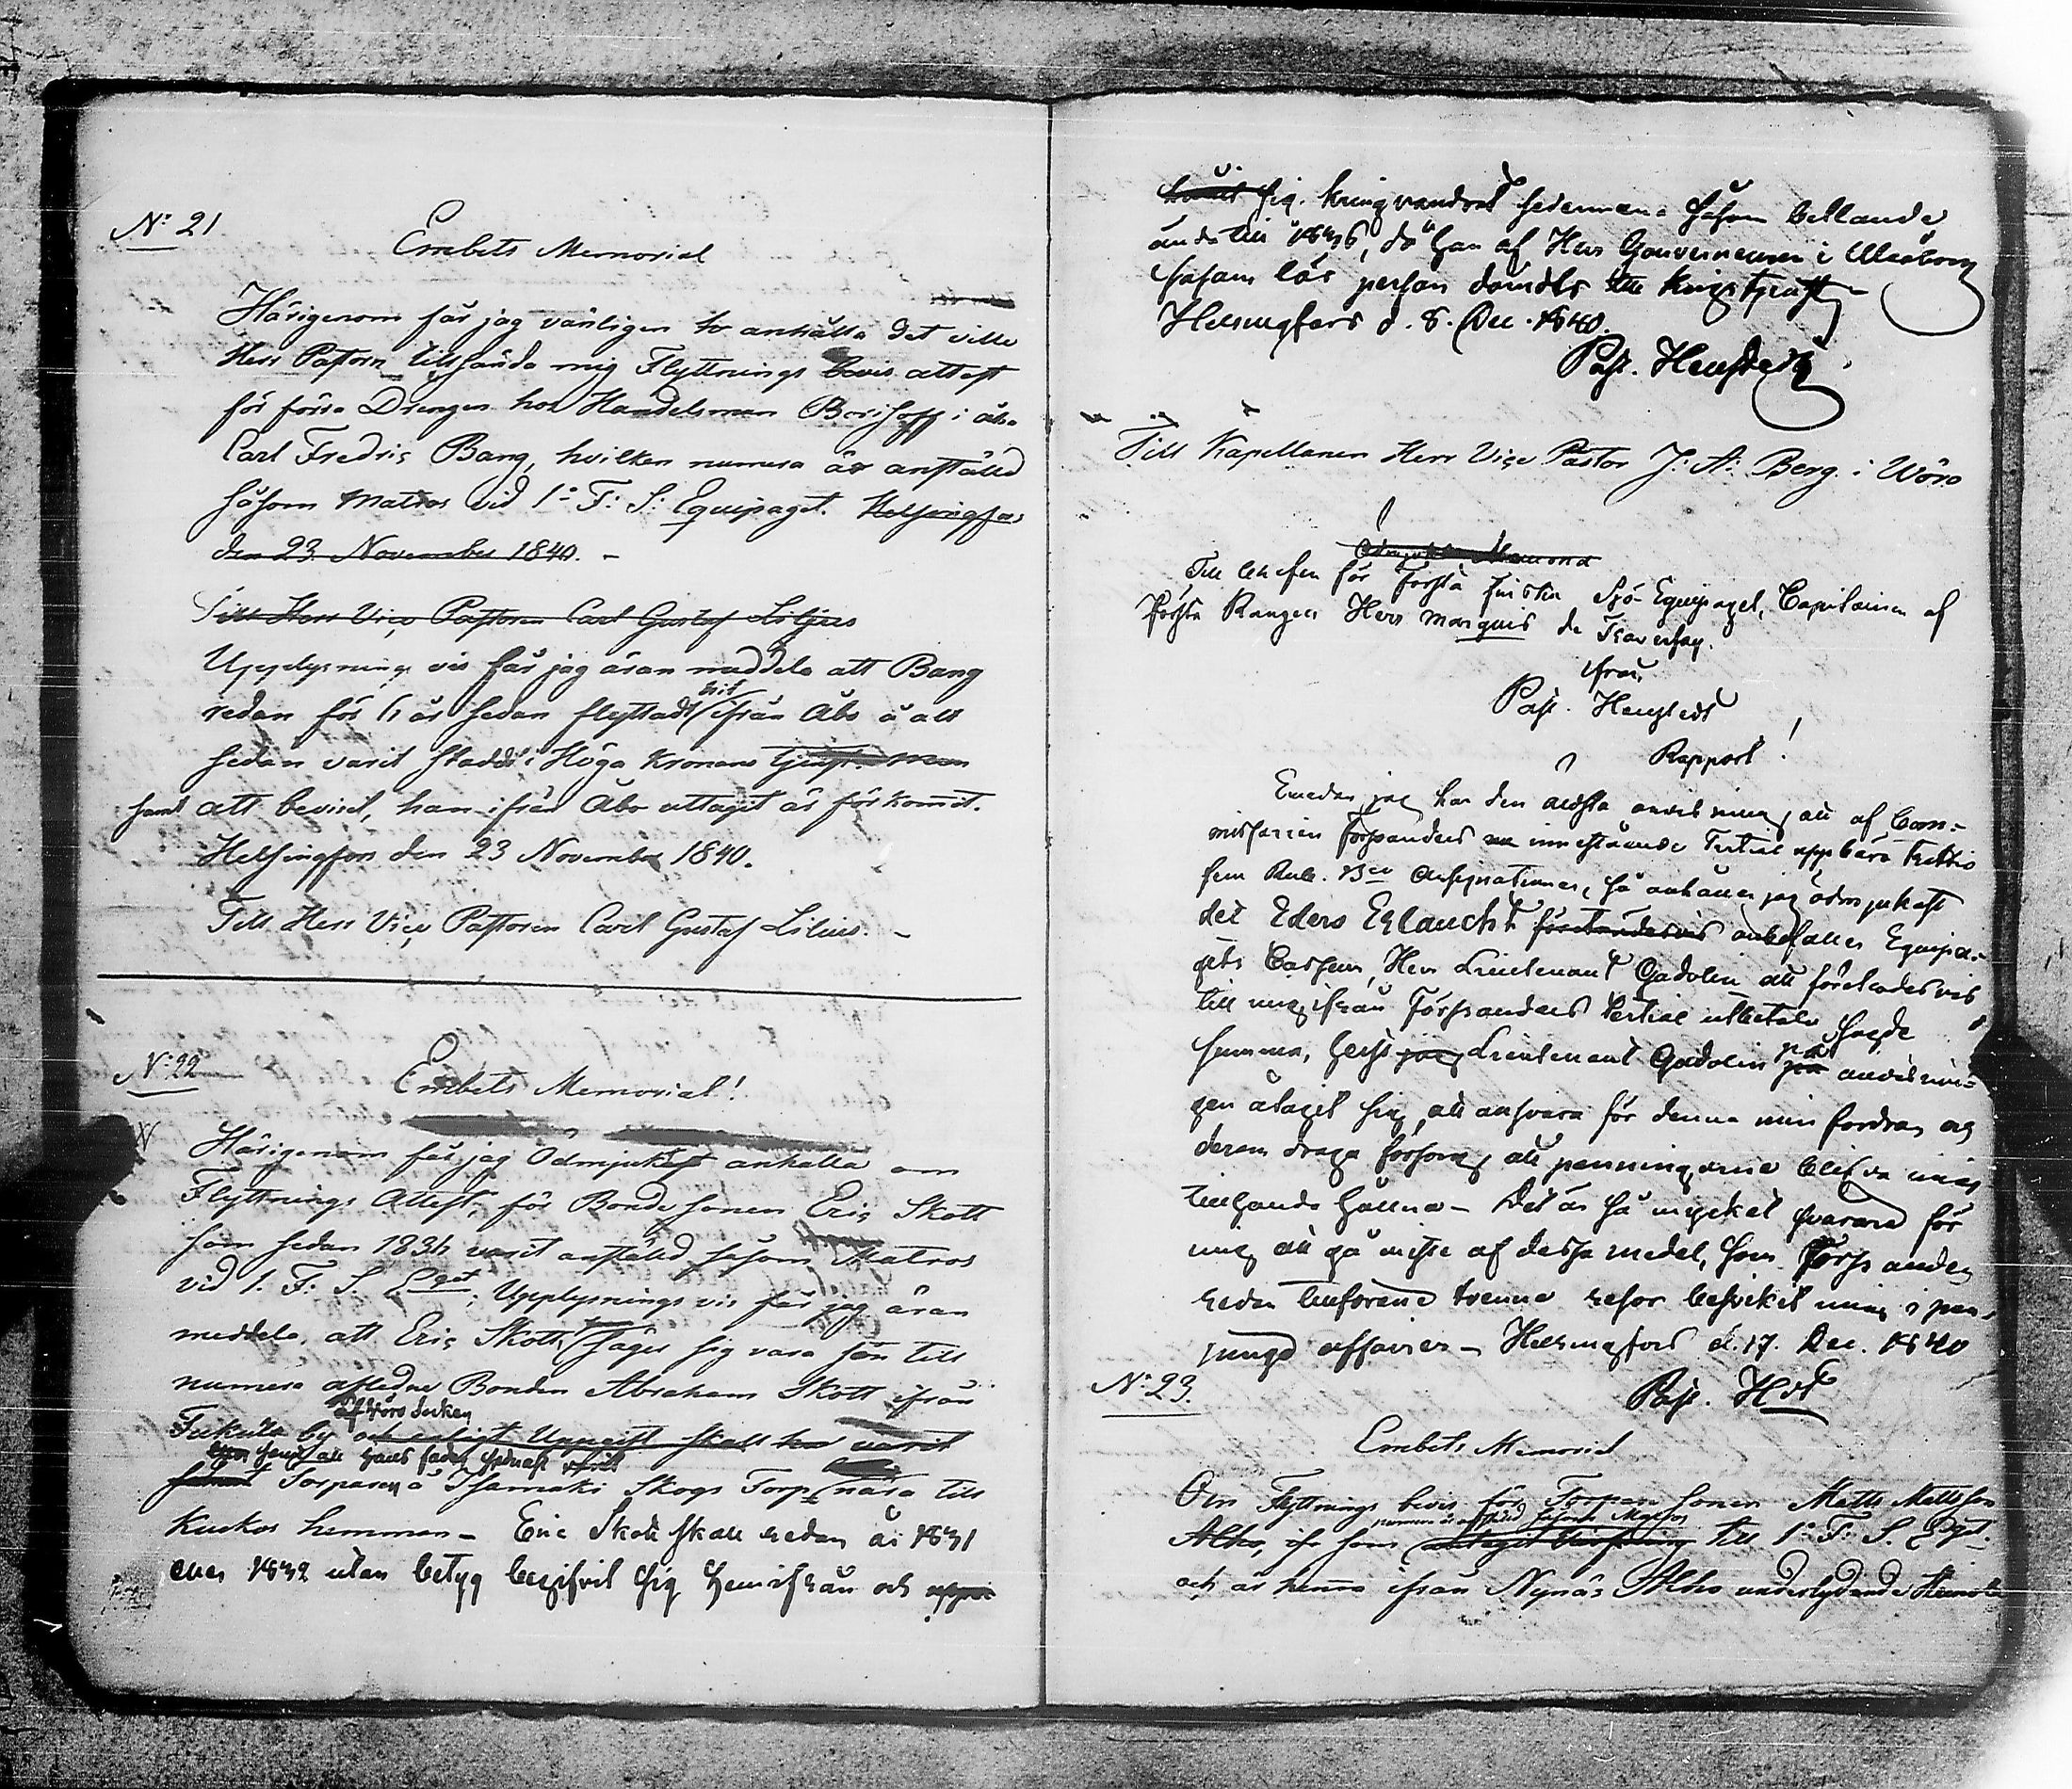 N:o 21
Embets Memorial
Härigenom får jag vänligen anhålla det ville
Herr Pastorn tillsända mig Flyttnings bevis attest
för förra Drengen hos Handelsman Borisoff i åbo
Carl Fredric Bang, hvilken numera är anställd
såsom Matros vid 1:a F: S: Equipaget. Helsingfors
den 23 November 1840. -
Till Herr Vice Pastoren Carl Gustaf Lilius
Upplysnings vis får jag äran meddela att Bang
redan för 6 år sedan flyttadt hit ifrån Åbo å att
sedan varit stadd i Höga Kronans tjenst
samt att beviset, han ifrån Åbo uttagit är förkommit.
Helsingfors den 23 November 1840.
Till Herr Vice Pastoren Carl Gustaf Lilius. -
N:o 22
Embets Memorial!
Härigenom får jag Ödmjukast anhålla om
Flyttnings Attest, för Bondesonen Eric Skott
som sedan 1836 varit anställd såsom Matros
vid 1. F: S. Eqet. Upplysningsvis får jag äran
meddela, att Eric Skott säger sig vara son till
numera aflednе Bonden Abraham Skott ifrån
af Vörå Socken
by och enligt Uppgift skall han varit
samt att hans fader sednast varit
Torparen å Isamäki Skogs Torp nära till
Kuckos hemman - Eric Skott skall redan år 1831
eller 1832 utan betyg begifvit sig hemifrån och
sig. kringvandrat sedermera såsom bettlande
ända till 1836, då han af Herr Gouverneuren i Uleåborg
såsom lös person dömdes till Krigstjenst -
Helsingfors d. 8. Dec. 1840.
Past. Hougstedt
Till Kapellanen Herr Vice Pastor J: A: Berg i Wörå
Till Chefen för Första finska Sjö-Equipaget, Capitainen af
första Rangen Herr Marquis de Traversay.
ifrån
Past. Hougstedt
Rapport!
Emedan jag har den aldsta anvisning, att af Com-
missarien Forssanders innestående Tertial uppbära trettio
fem Rub. B:co Assignationer, så anhåller jag ödmjukast
det Eders Erlaucht anbefaller Equipa-
gets Casseur, Herr Lieutenant Gadolin att företrädesvis
till mig ifrån Forssanders tertial utbetala sagde
summa, helst Lieutenant Gadolin på anvisnin-
gen åtagit sig, att ansvara för denna min fordran och
derom draga försorg att penningarne blifva mig
tillhanda hållna - Det är så mycket svårare för
mig att gå miste af dessa medel, som Forssander
redan tillförene tvenne resor besvikit mig i pen-
ninge affairer - Helsingfors d. 17. Dec. 1840
Past. Hdt
N:o 23.
Embets Memorial
Om Flyttnings bevis för Torpare Sonen Matts Mattsson
numera är anställd såsom Matros
Alho, som till 1:a F: S. Eqet.
och är hemma ifrån Nynäs Alho underlydande